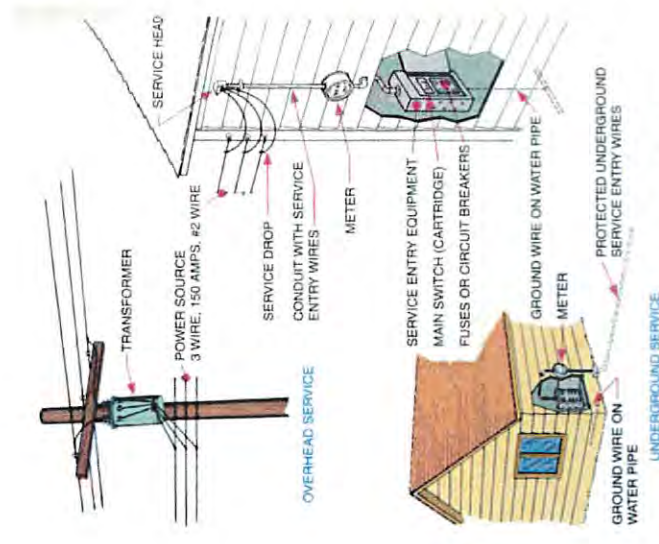 SERVICE HEAD
TRANSFORMER
POWER SOURCE
3 WIRE, 150 AMPS, #2 WIRE
SERVICE DROP
CONDUIT WITH SERVICE
ENTRY WIRES
METER
OVERHEAD SERVICE
SERVICE ENTRY EQUIPMENT
MAIN SWITCH (CARTRIDGE)
FUSES OR CIRCUIT BREAKERS
GROUND WIRE ON WATER PIPE
METER
PROTECTED UNDERGROUND
SERVICE ENTRY WIRES
GROUND WIRE ON
WATER PIPE
UNDERGROUND SERVICE